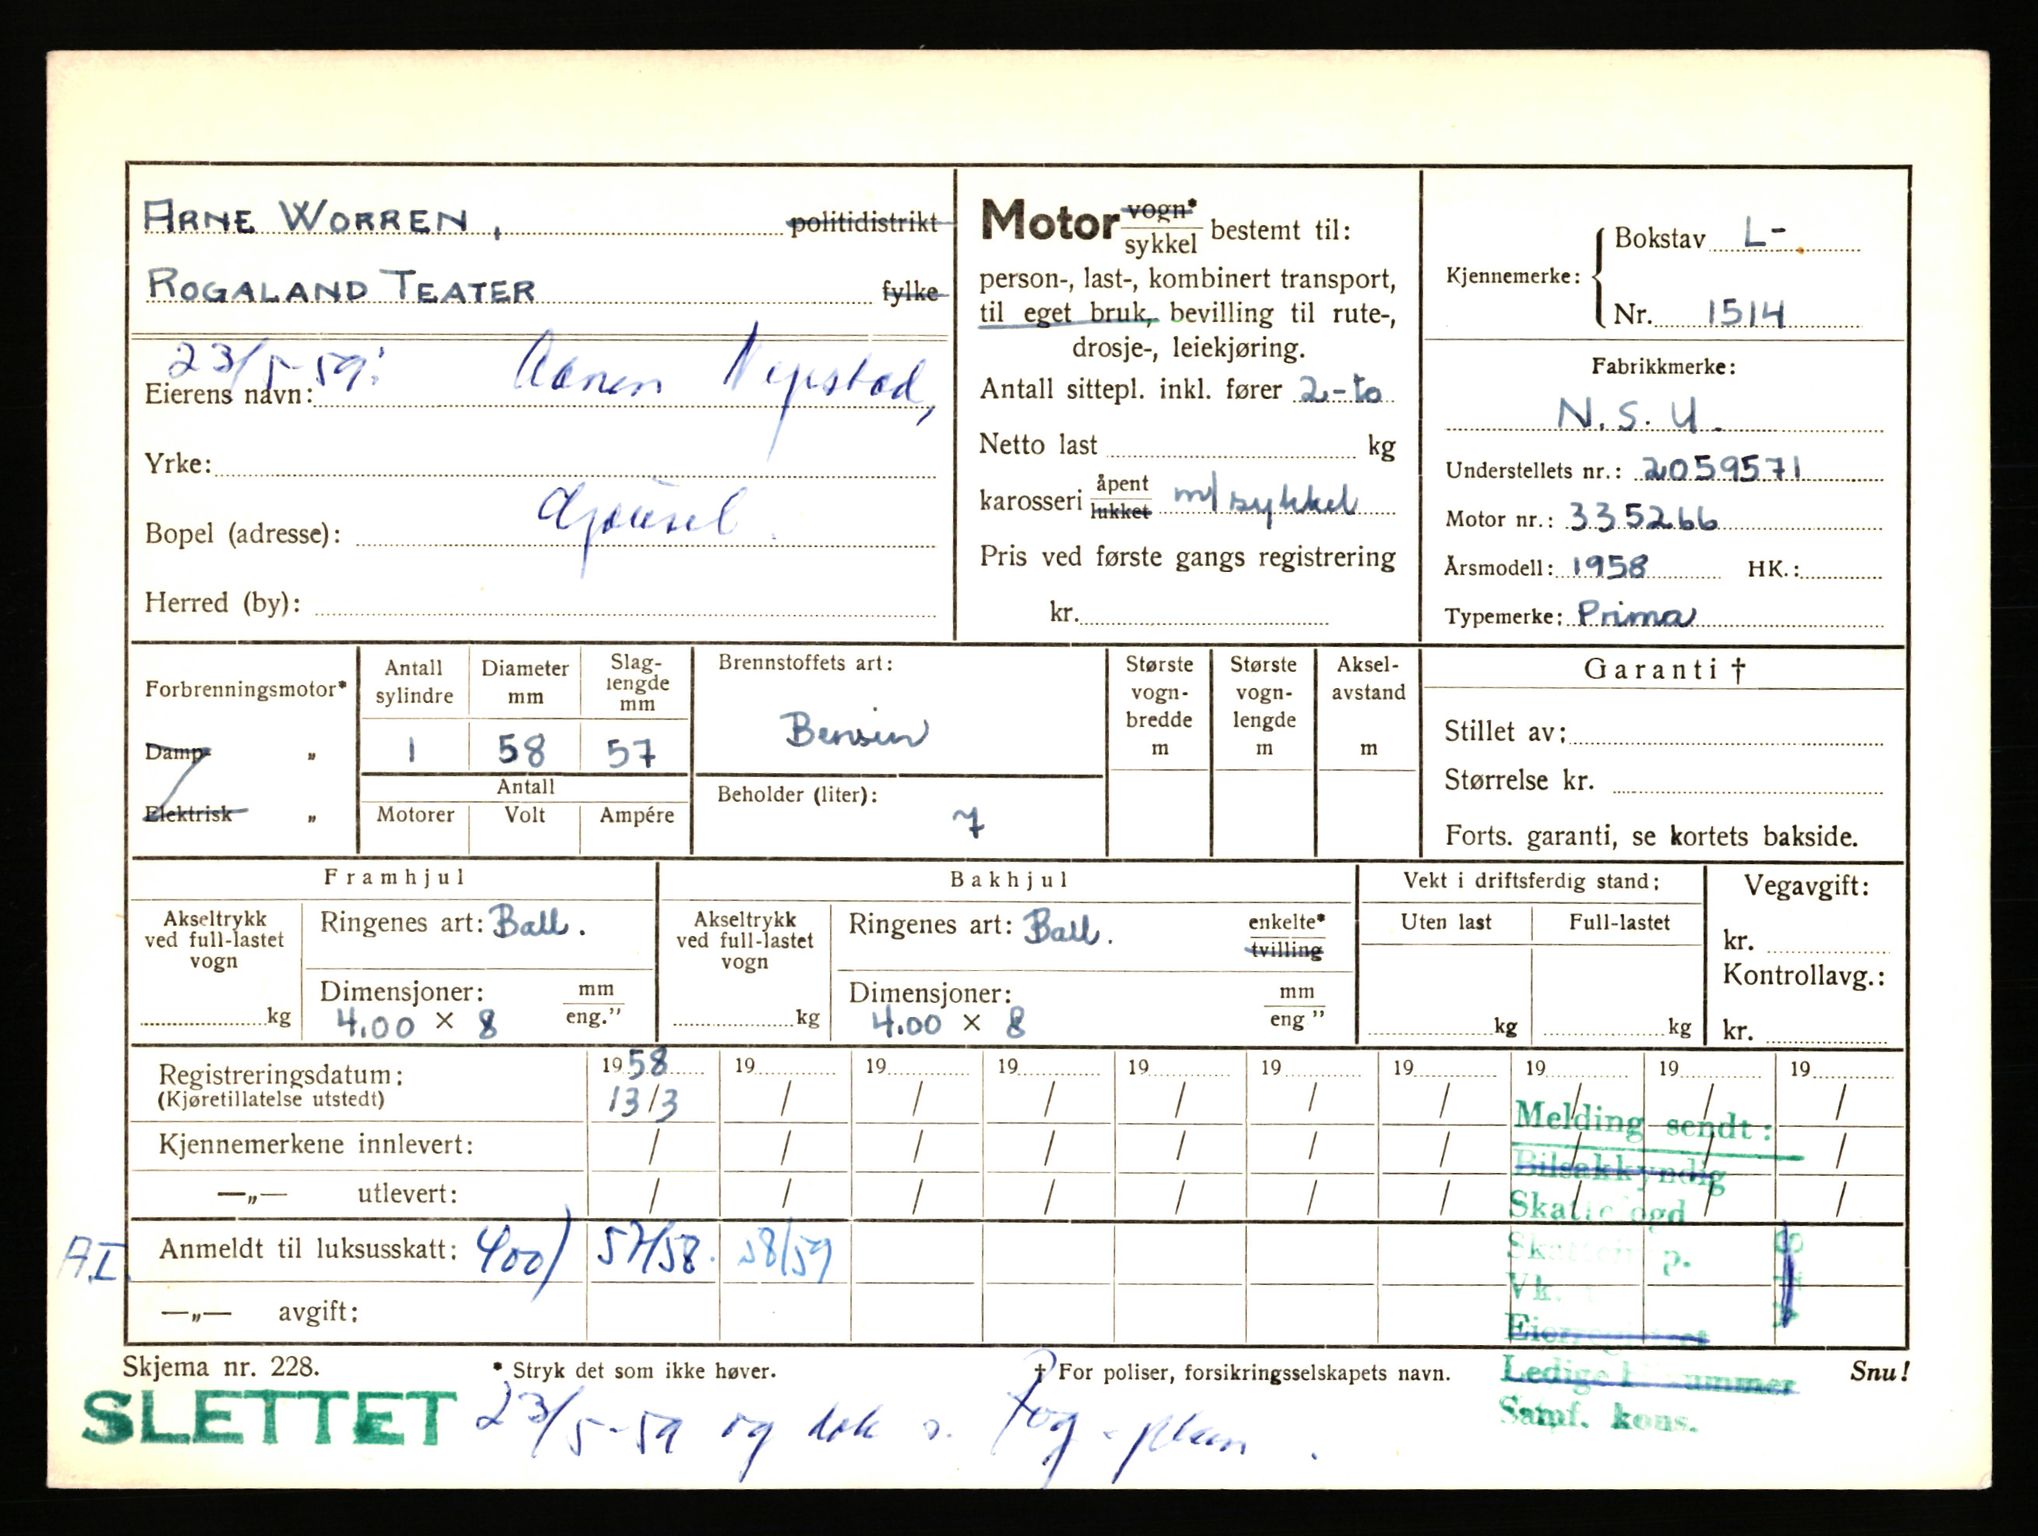 ARNE WORREN, politidistrikt
ROGALAND TEATER fylke
23/5-59:
Eierens navn:
Yrke:
Bopel (adresse):
Herred (by):
Motor vogn*
sykkel bestemt til:
person-, last-, kombinert transport,
til eget bruk, bevilling til rute-,
drosje-, leiekjøring.
Antall sittepl. inkl. fører 2-to
Netto last kg
karosseri åpent
lukket m/sykkel
Pris ved første gangs registrering
kr.
Kjennemerke: Bokstav L-
Nr. 1514
Fabrikkmerke:
N.S.U.
Understellets nr.: 2059571
Motor nr.: 335266
Årsmodell: 1958 HK.:
Typemerke: Prima
Forbrenningsmotor*
Damp "
Elektrisk "
Antall sylindre
1
Diameter mm
58
Slag-lengde mm
57
Antall
Motorer Volt Ampére
Brennstoffets art:
Bensin
Beholder (liter):
7
Største vogn-bredde m
Største vogn-lengde m
Aksel-avstand m
Garanti †
Stillet av:
Størrelse kr.
Forts. garanti, se kortets bakside.
Framhjul
Akseltrykk ved full-lastet vogn
kg
Ringenes art: Ball.
Dimensjoner: mm
4.00 x 8 eng."
Bakhjul
Akseltrykk ved full-lastet vogn
kg
Ringenes art: Ball. enkelte*
tvilling
Dimensjoner: mm
4.00 x 8 eng "
Vekt i driftsferdig stand:
Uten last Full-lastet
kg kg
Vegavgift:
kr.
Kontrollavg.:
kr.
Registreringsdatum: 1958 19 19 19 19 19 19 19 19 19
(Kjøretillatelse utstedt) 13/3 / / / / / / / / /
Kjennemerkene innlevert: / / / / / / / / / /
—„— utlevert: / / / / / / / / / /
A.I. Anmeldt til luksusskatt: 400) 57/58. 58/59
—„— avgift:
Melding sendt:
Bilsakkyndig
Vk.
Samf. kons.
Skjema nr. 228. * Stryk det som ikke høver. † For poliser, forsikringsselskapets navn. Snu!
SLETTET 23/5-59 og